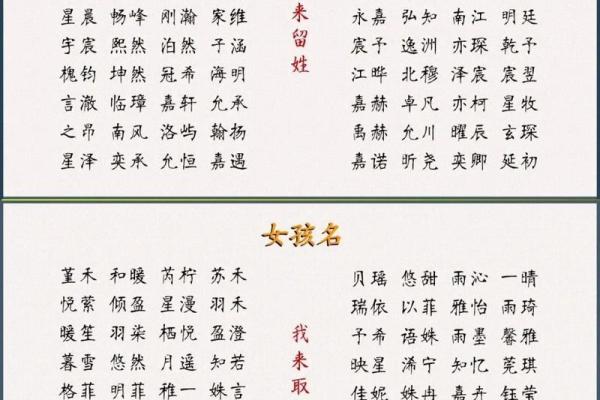 星晨 畅峰 刚瀚 家维
宇宸 熙然 泊然 子涵
槐钧 坤然 冠希 海明
言澈 临璋 嘉轩 允承
之昂 南风 洛屿 翰扬
星泽 奕承 允恒 嘉遇
来留姓
永嘉 弘知 南江 明廷
宸予 逸洲 亦琛 乾予
江晔 北穆 泽宸 宸翌
嘉赫 卓凡 亦柯 星牧
禹赫 允川 曜辰 玄琛
嘉诺 昕尧 奕卿 延初
女孩名
堇禾 和暖 芮柠 苏禾
悦萦 倾盈 星漫 羽禾
暖笙 羽柒 栖悦 盈澄
暮雪 悠然 月遥 知若
格菲 明菲 稚一 姝言
我来取
贝瑶 悠甜 雨沁 一晴
瑞依 以菲 雅怡 雨琦
予希 语姝 雨墨 馨雅
映星 浠宁 知忆 莞琪
佳妮 姝冉 嘉卉 钰莹